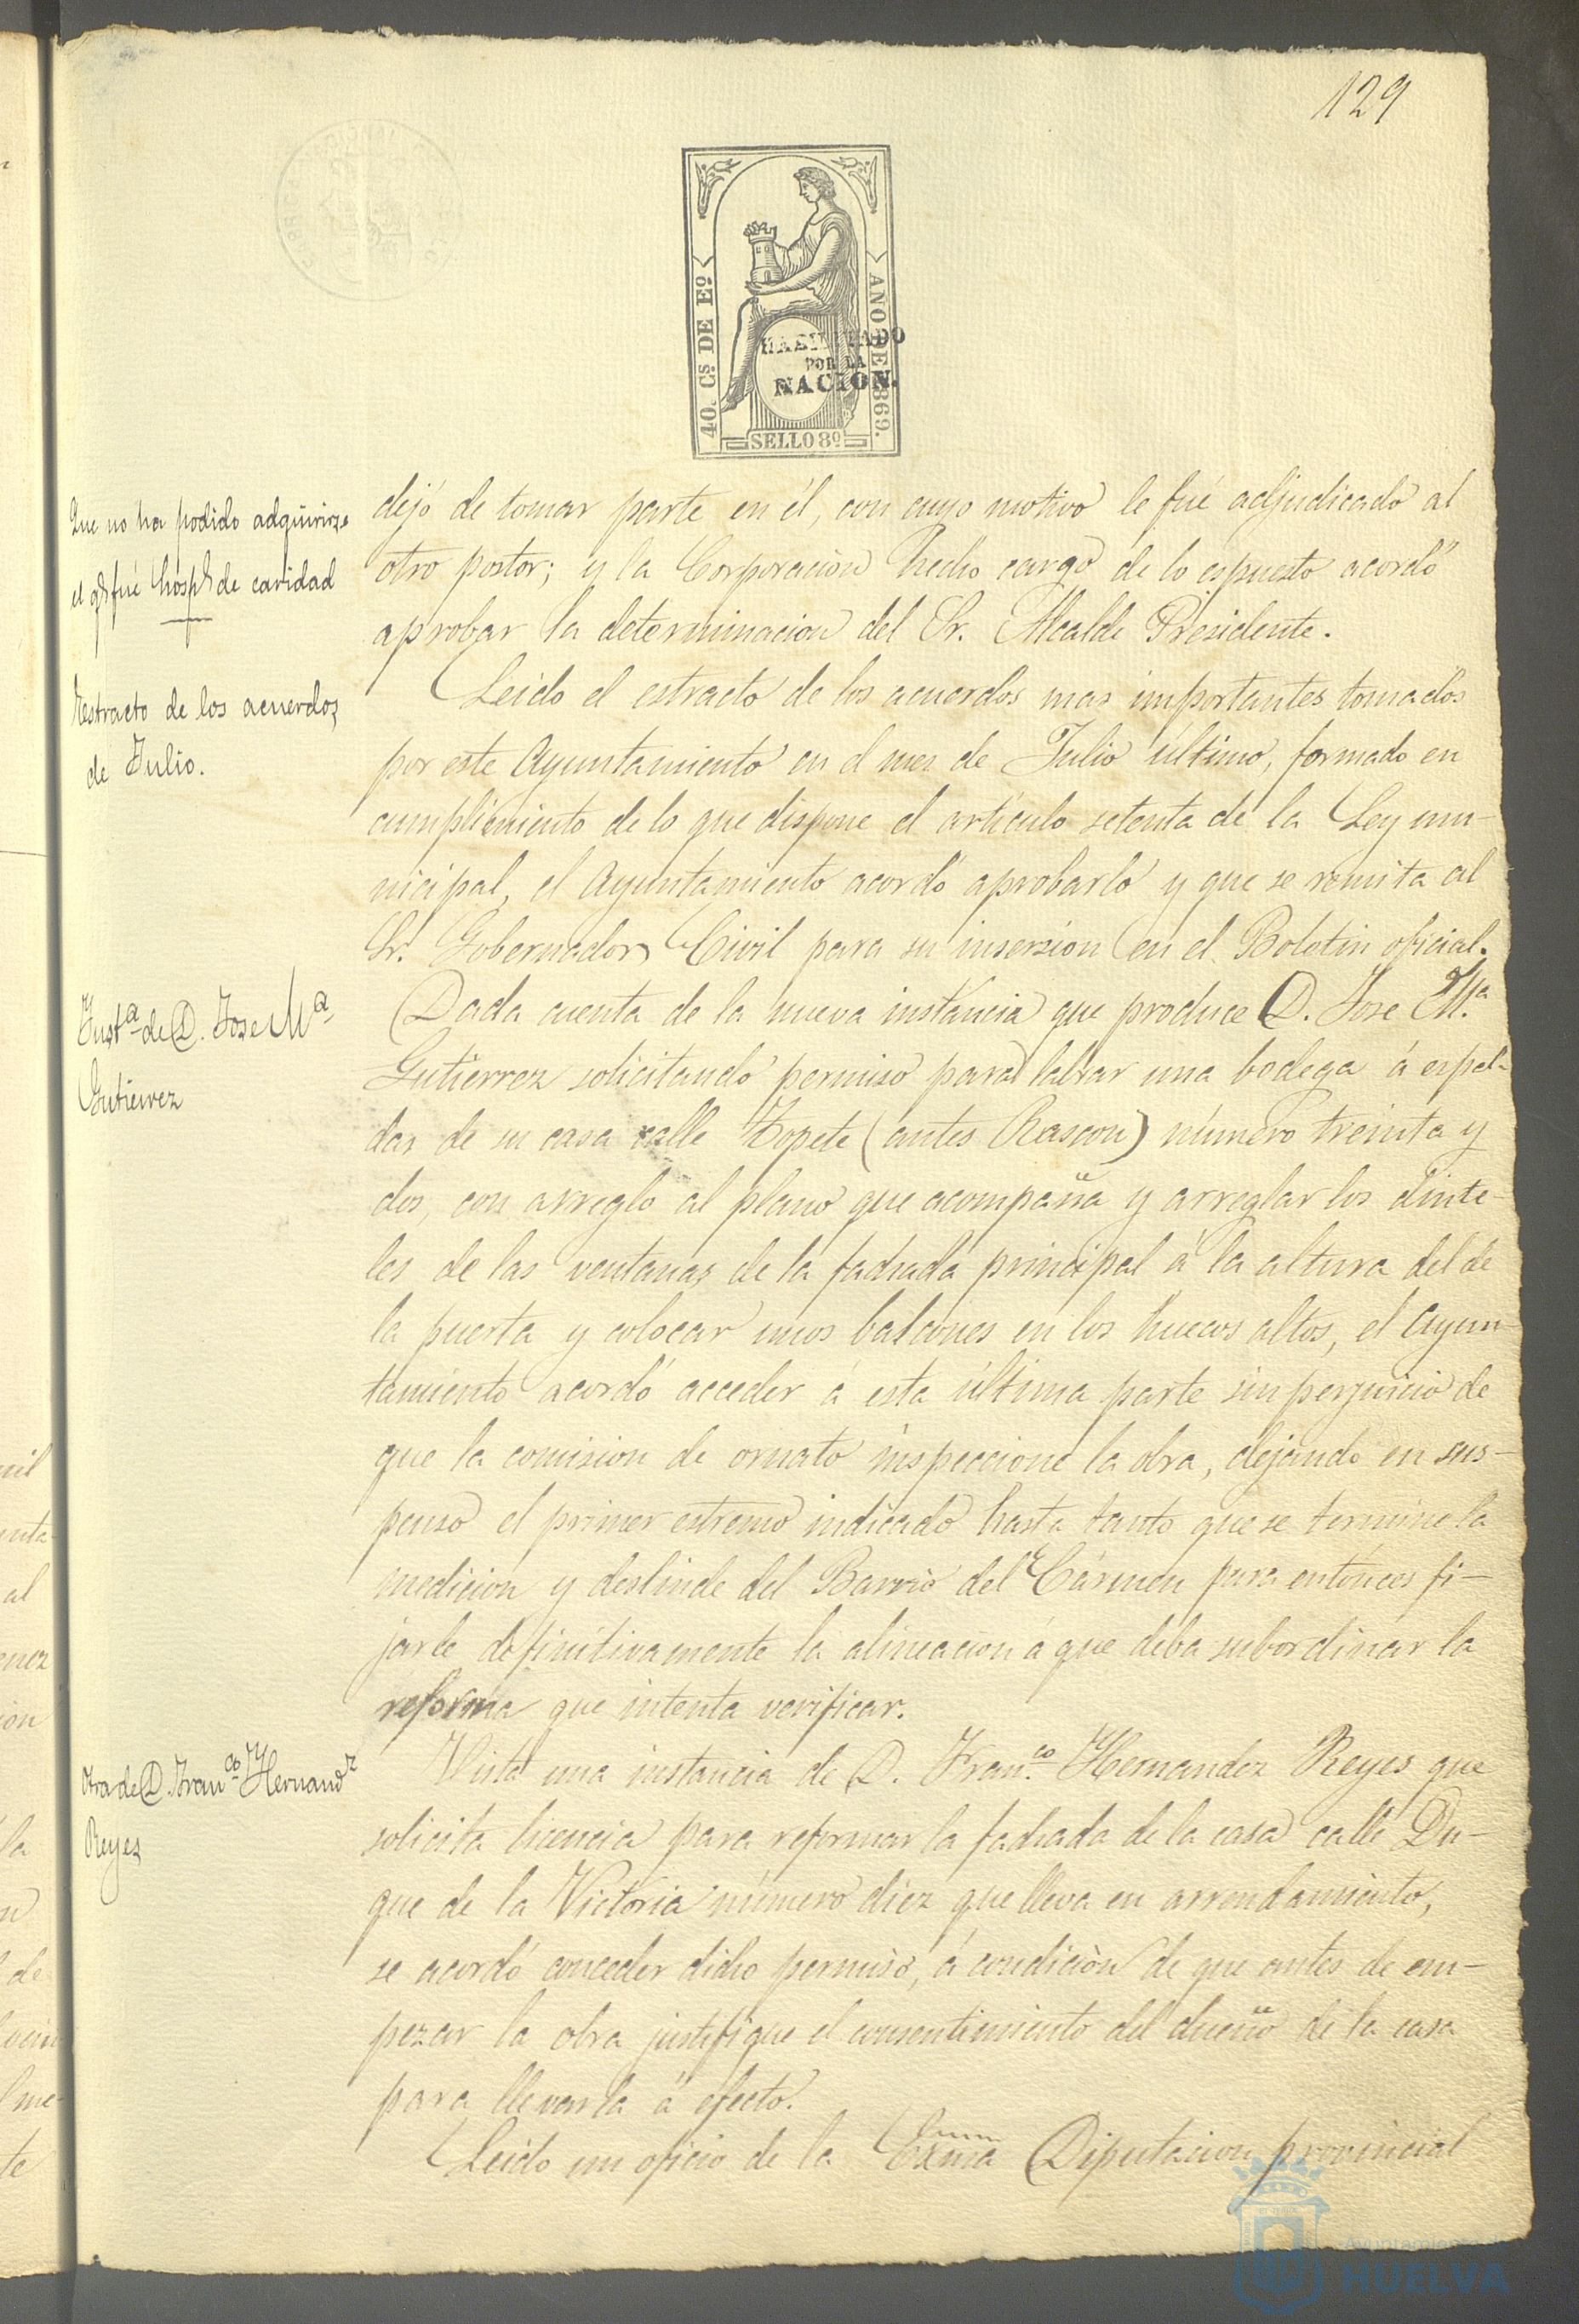 129
40. Cs. DE Eo.
AÑO DE 1869.
HABILITADO
POR LA
NACION.
SELLO 8º
Que no ha podido adquirirse
el qe. fué hospl. de caridad
dejó de tomar parte en él, con cuyo motivo le fué adjudicado al
otro postor; y la Corporacion hecho cargo de lo espuesto acordó
aprobar la determinacion del Sr. Alcalde Presidente.
Estracto de los acuerdos
de Julio.
Leido el estracto de los acuerdos mas importantes tomados
por este Ayuntamiento en el mes de Julio último, formado en
cumplimiento de lo que dispone el artículo setenta de la Ley mu-
nicipal, el Ayuntamiento acordó aprobarlo y que se remita al
Sr. Gobernador Civil para su insersion en el Boletin oficial.
Insta. de D. Jose Ma.
Gutierrez
Dada cuenta de la nueva instancia que produce D. Jose Ma.
Gutierrez solicitando permiso para labrar una bodega á espal-
das de su casa calle Topete (antes Rascon) número treinta y
dos, con arreglo al plano que acompaña y arreglar los dinte-
les de las ventanas de la fachada principal á la altura del de
la puerta y colocar unos balcones en los huecos altos, el Ayun-
tamiento acordó acceder á esta última parte sin perjuicio de
que la comision de ornato inspeccione la obra, dejando en sus-
penso el primer estremo indicado hasta tanto que se termine la
medicion y deslinde del Barrio del Cármen para entónces fi-
jarle definitivamente la alineacion á que deba subordinar la
reforma que intenta verificar.
Otra de D. Franco. Hernandz.
Reyes
Vista una instancia de D. Franco. Hernandez Reyes que
solicita licencia para reformar la fachada de la casa calle Du-
que de la Victoria número diez que lleva en arrendamiento,
se acordó conceder dicho permiso, á condicion de que antes de em-
pezar la obra justifique el consentimiento del dueño de la casa
para llevarla á efecto.
Leido un oficio de la Exma Diputacion provincial
Ayuntamiento
HUELVA